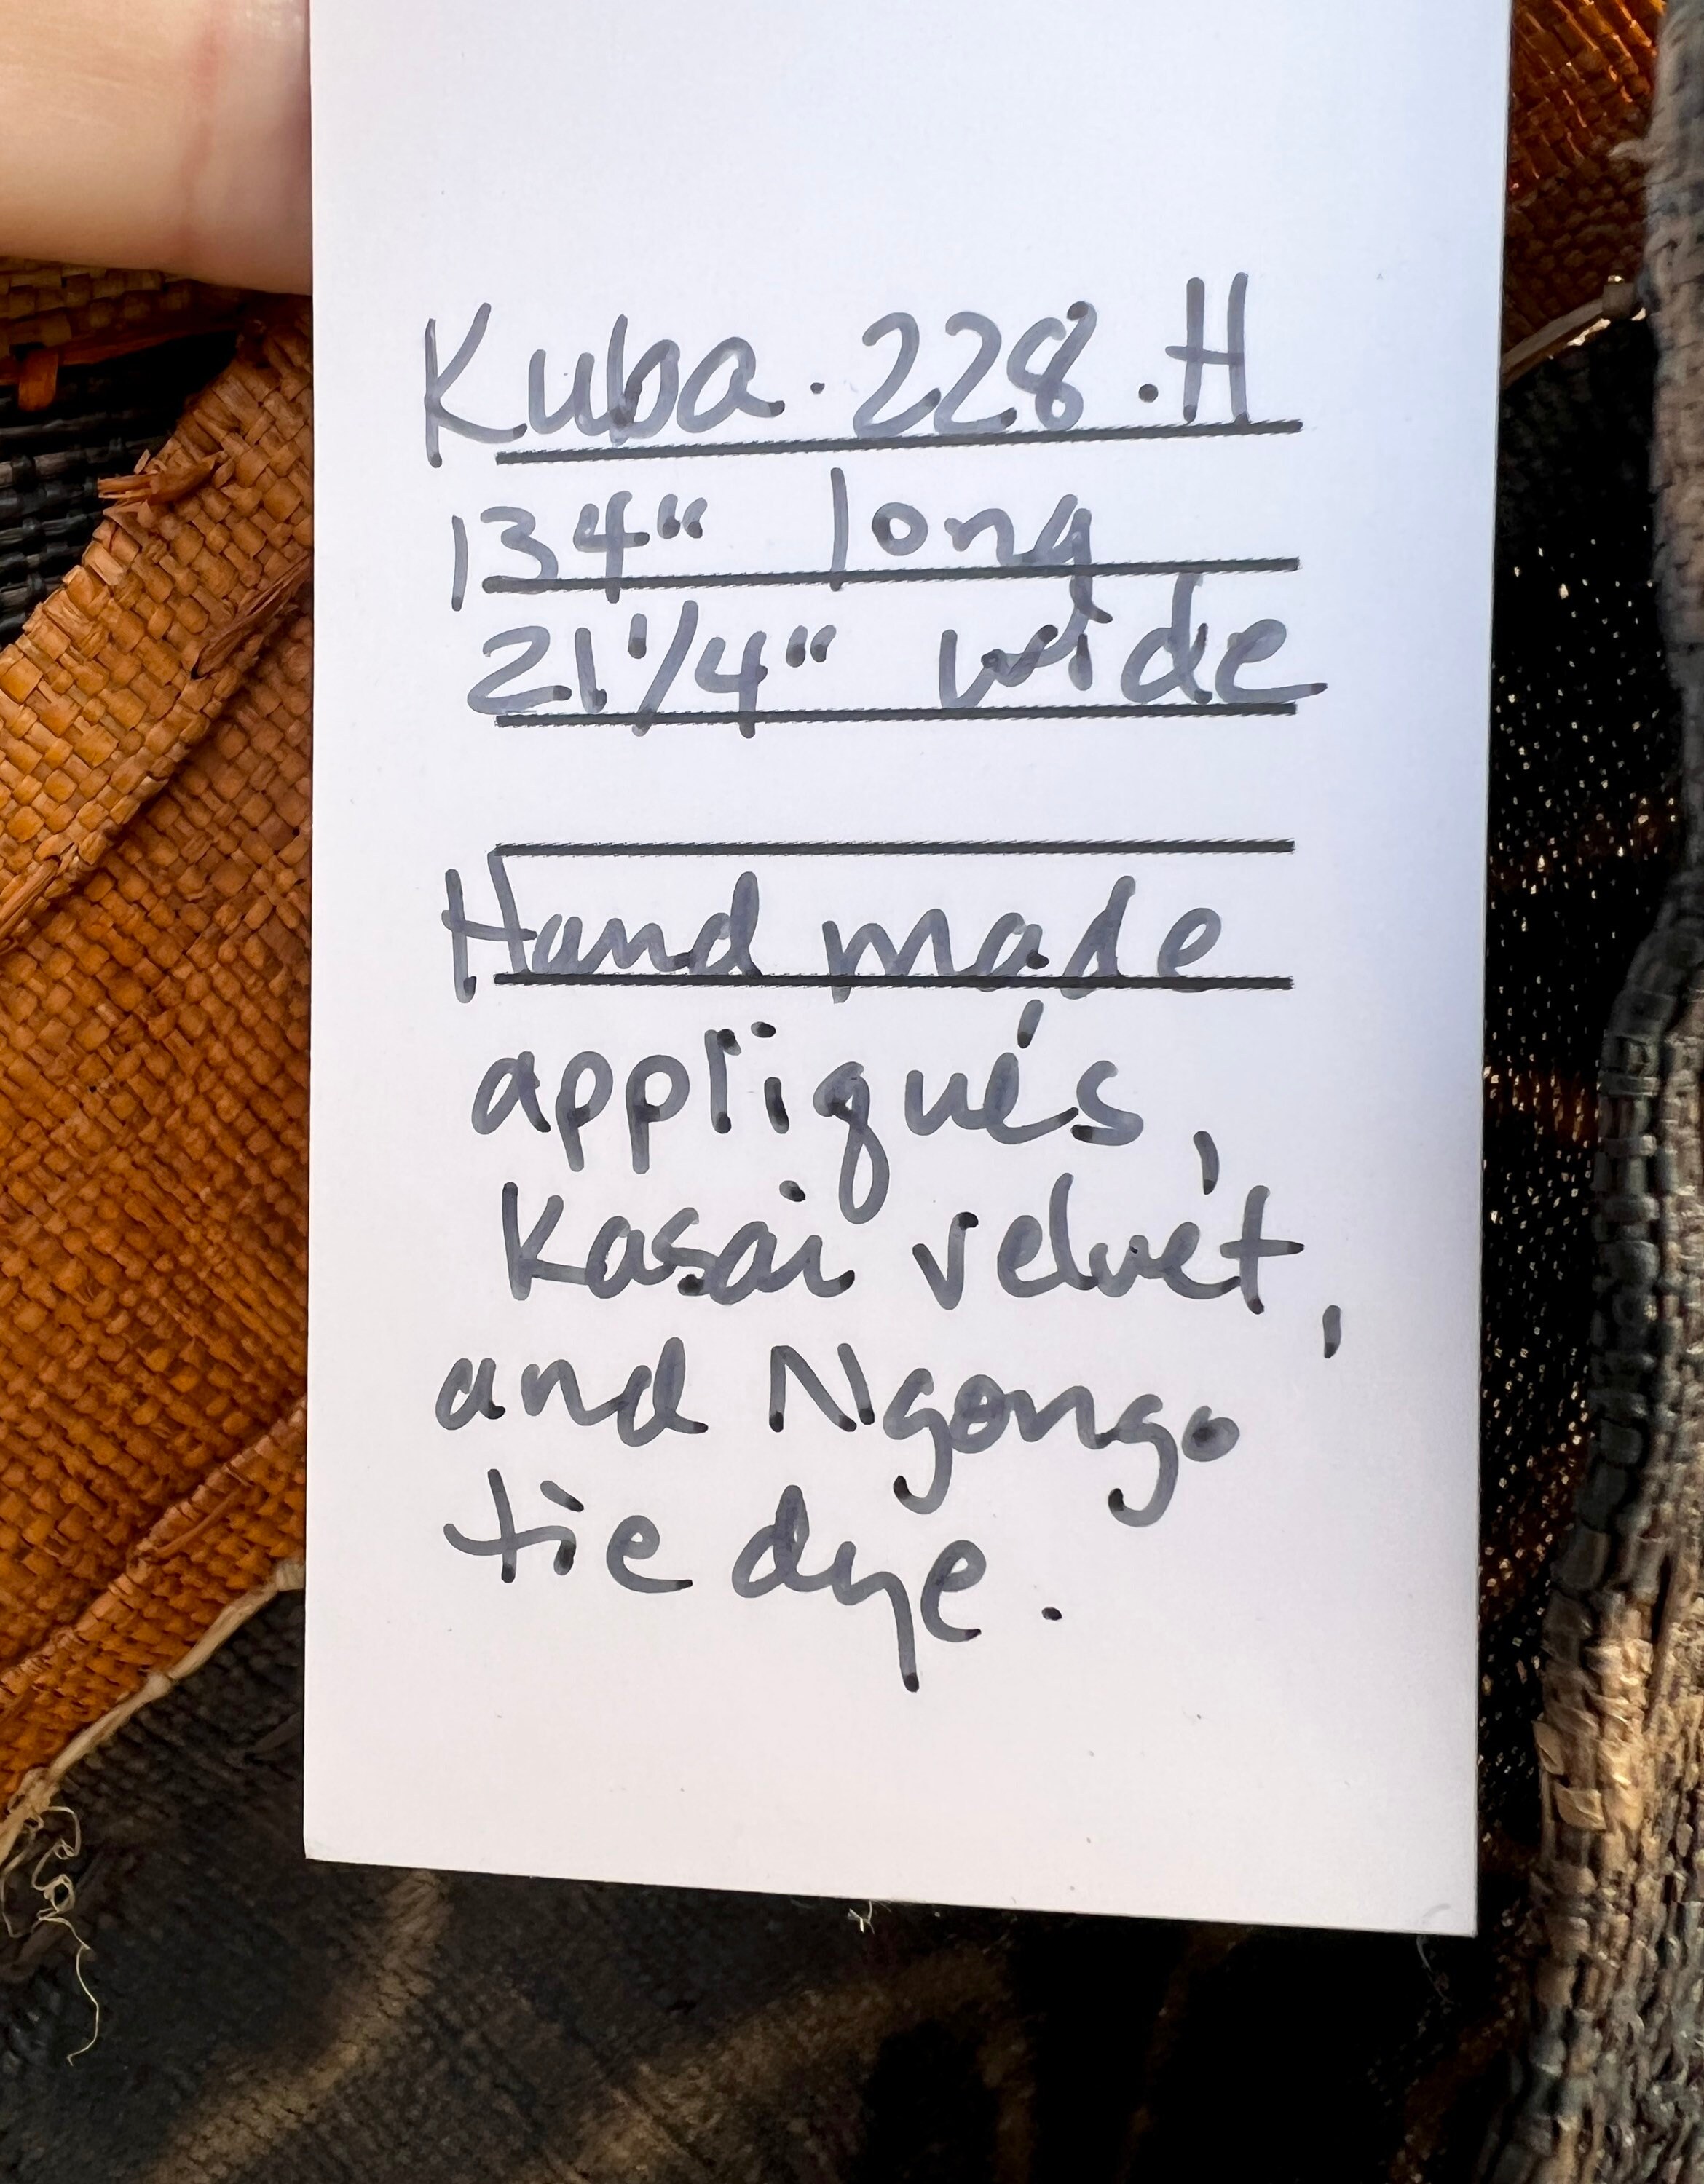 Kuba. 228.H
134" long
21 1/4" wide
Hand made
appliqués,
Kasai velvet,
and Ngongo
tie dye.